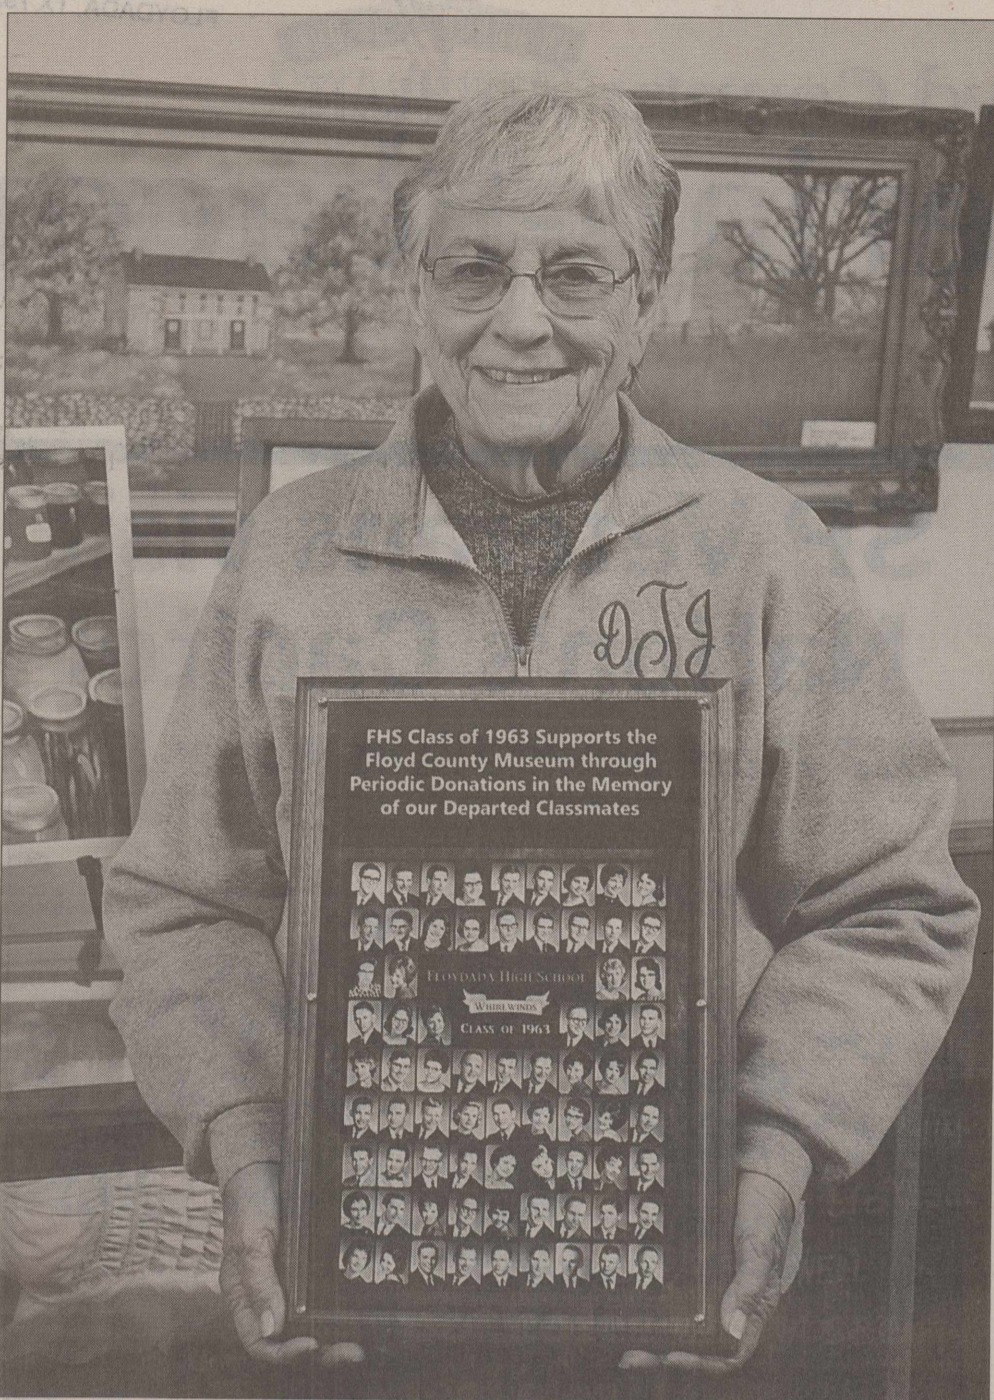 DTJ
FHS Class of 1963 Supports the
Floyd County Museum through
Periodic Donations in the Memory
of our Departed Classmates
FLOYDADA HIGH SCHOOL
WHIRLWINDS
CLASS OF 1963